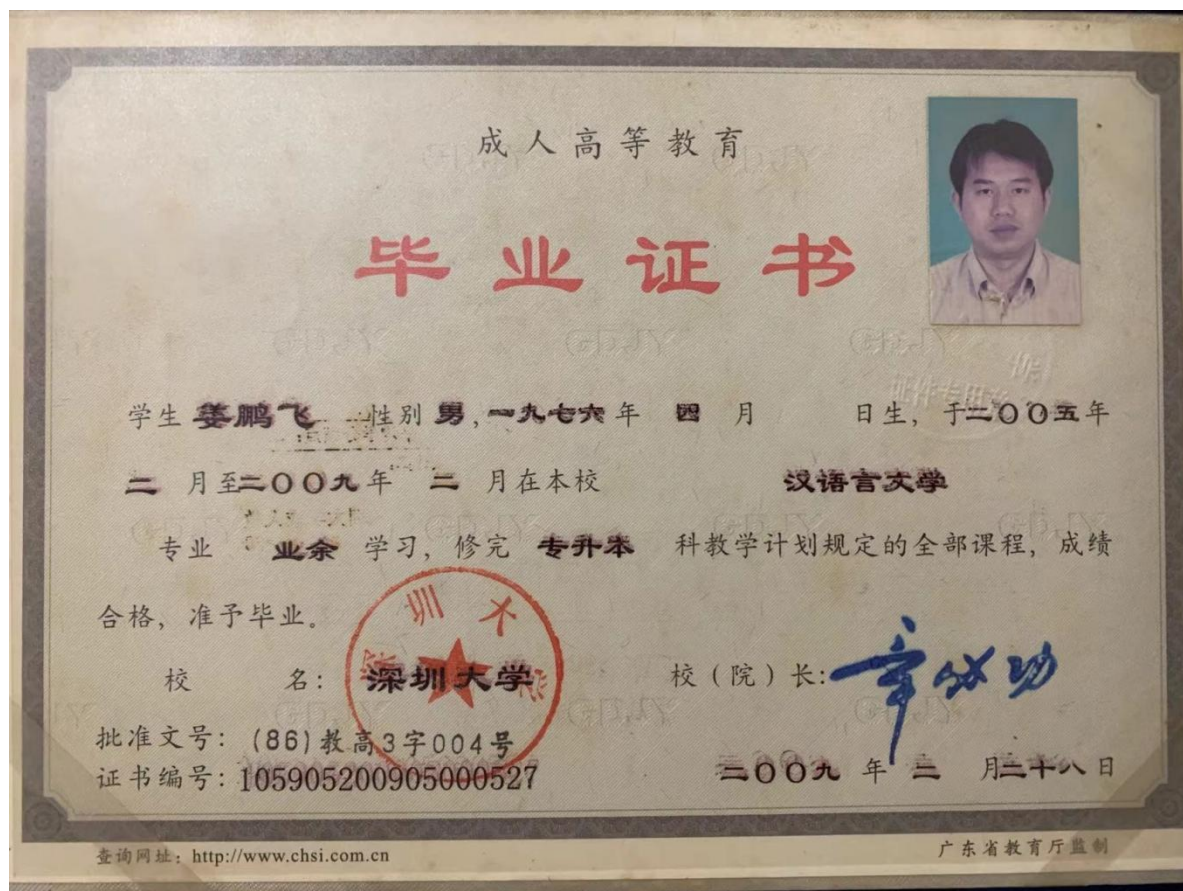 成人高等教育
毕业证书
证件专用章
学生 姜鹏飞 性别 男，一九七六年 四 月 日生，于二〇〇五年
二 月至二〇〇九年 二 月在本校 汉语言文学
专业 业余 学习，修完 专升本 科教学计划规定的全部课程，成绩
合格，准予毕业。
校 名：深圳大学
校（院）长：章必功
批准文号：(86)教高3字004号
证书编号：105905200905000527
二〇〇九 年 二 月二十八日
查询网址：http://www.chsi.com.cn
广东省教育厅监制